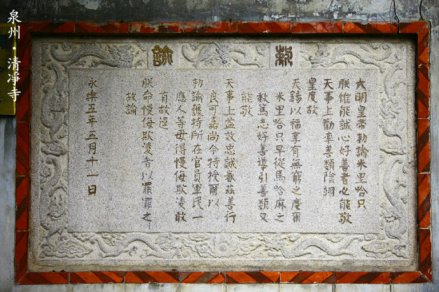 泉州・清淨寺
敕諭
大明皇帝敕諭米里哈只
朕惟能誠心好善者必能敬
天事上勸率善類陰翊
皇度故
天錫以福享有無窮之慶爾
米里哈只早從馬哈麻之
教篤志好善導引善類又
能敬
天事上益效忠誠眷茲善行
良可嘉尚今特授爾以
敕諭護持所在官員軍民一
應人等毋得慢侮欺凌敢
有故違
朕命慢侮欺凌者以罪罪之
故諭
永樂五年五月十一日